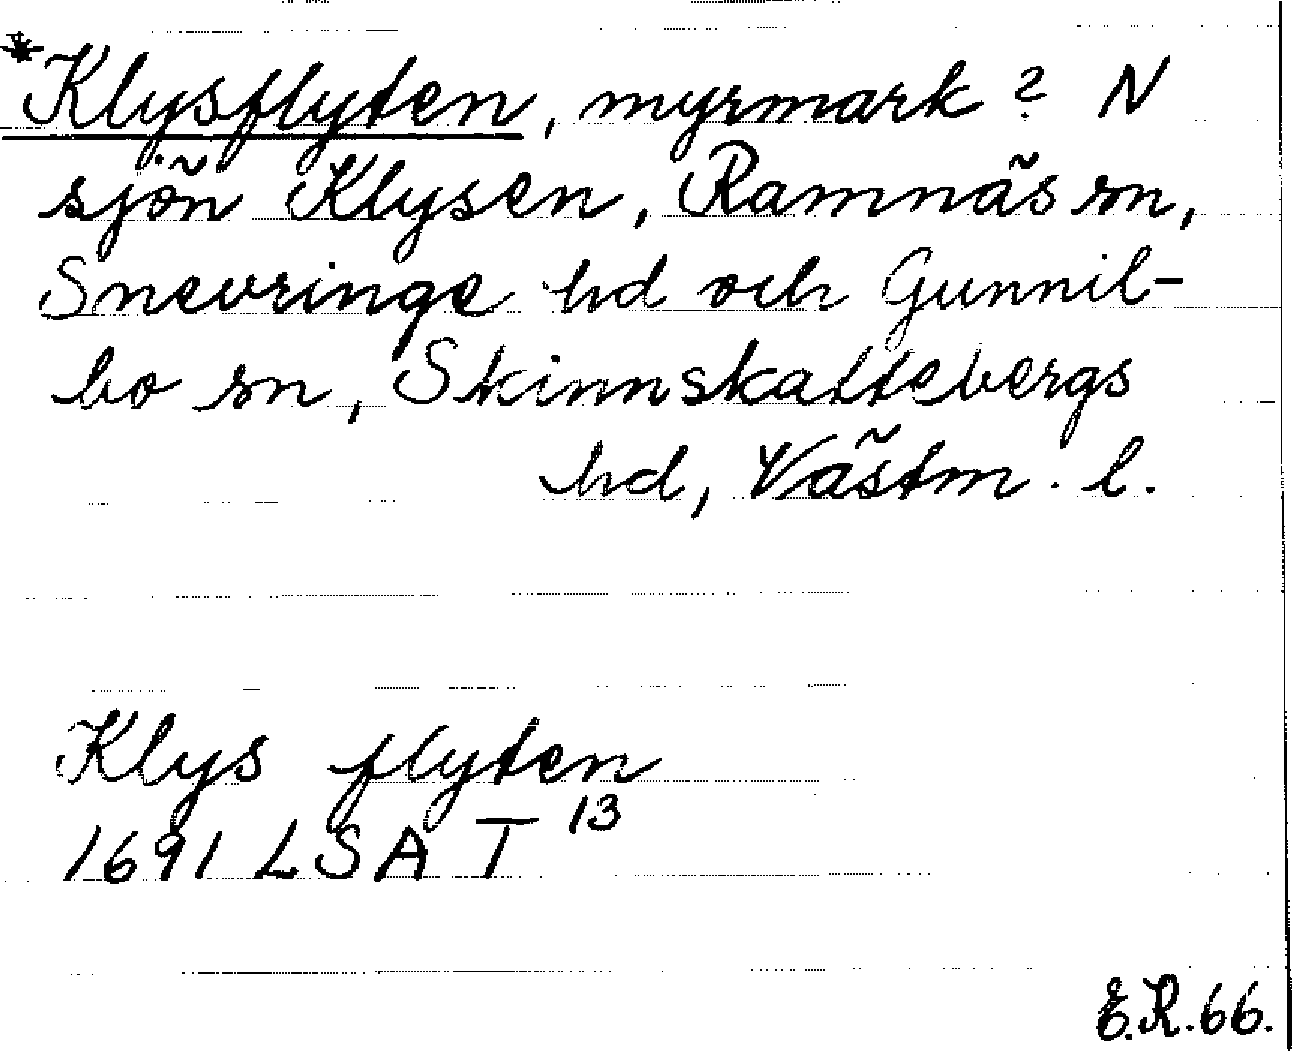 *Klysflyten, myrmark? N
sjön Klysen, Ramnäs sn,
Snevringe hd och Gunnil-
bo sn, Skinnskattebergs
hd, Västm. l.
Klys flyten
1691 LSA T 13
E.R.66.